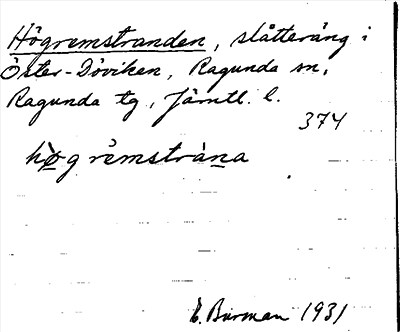 Högremstranden, slåtteräng i
Öster-Döviken, Ragunda sn,
Ragunda tg, Jämtl. l.
374
hø̀g rèmstràna
E. Burman 1931